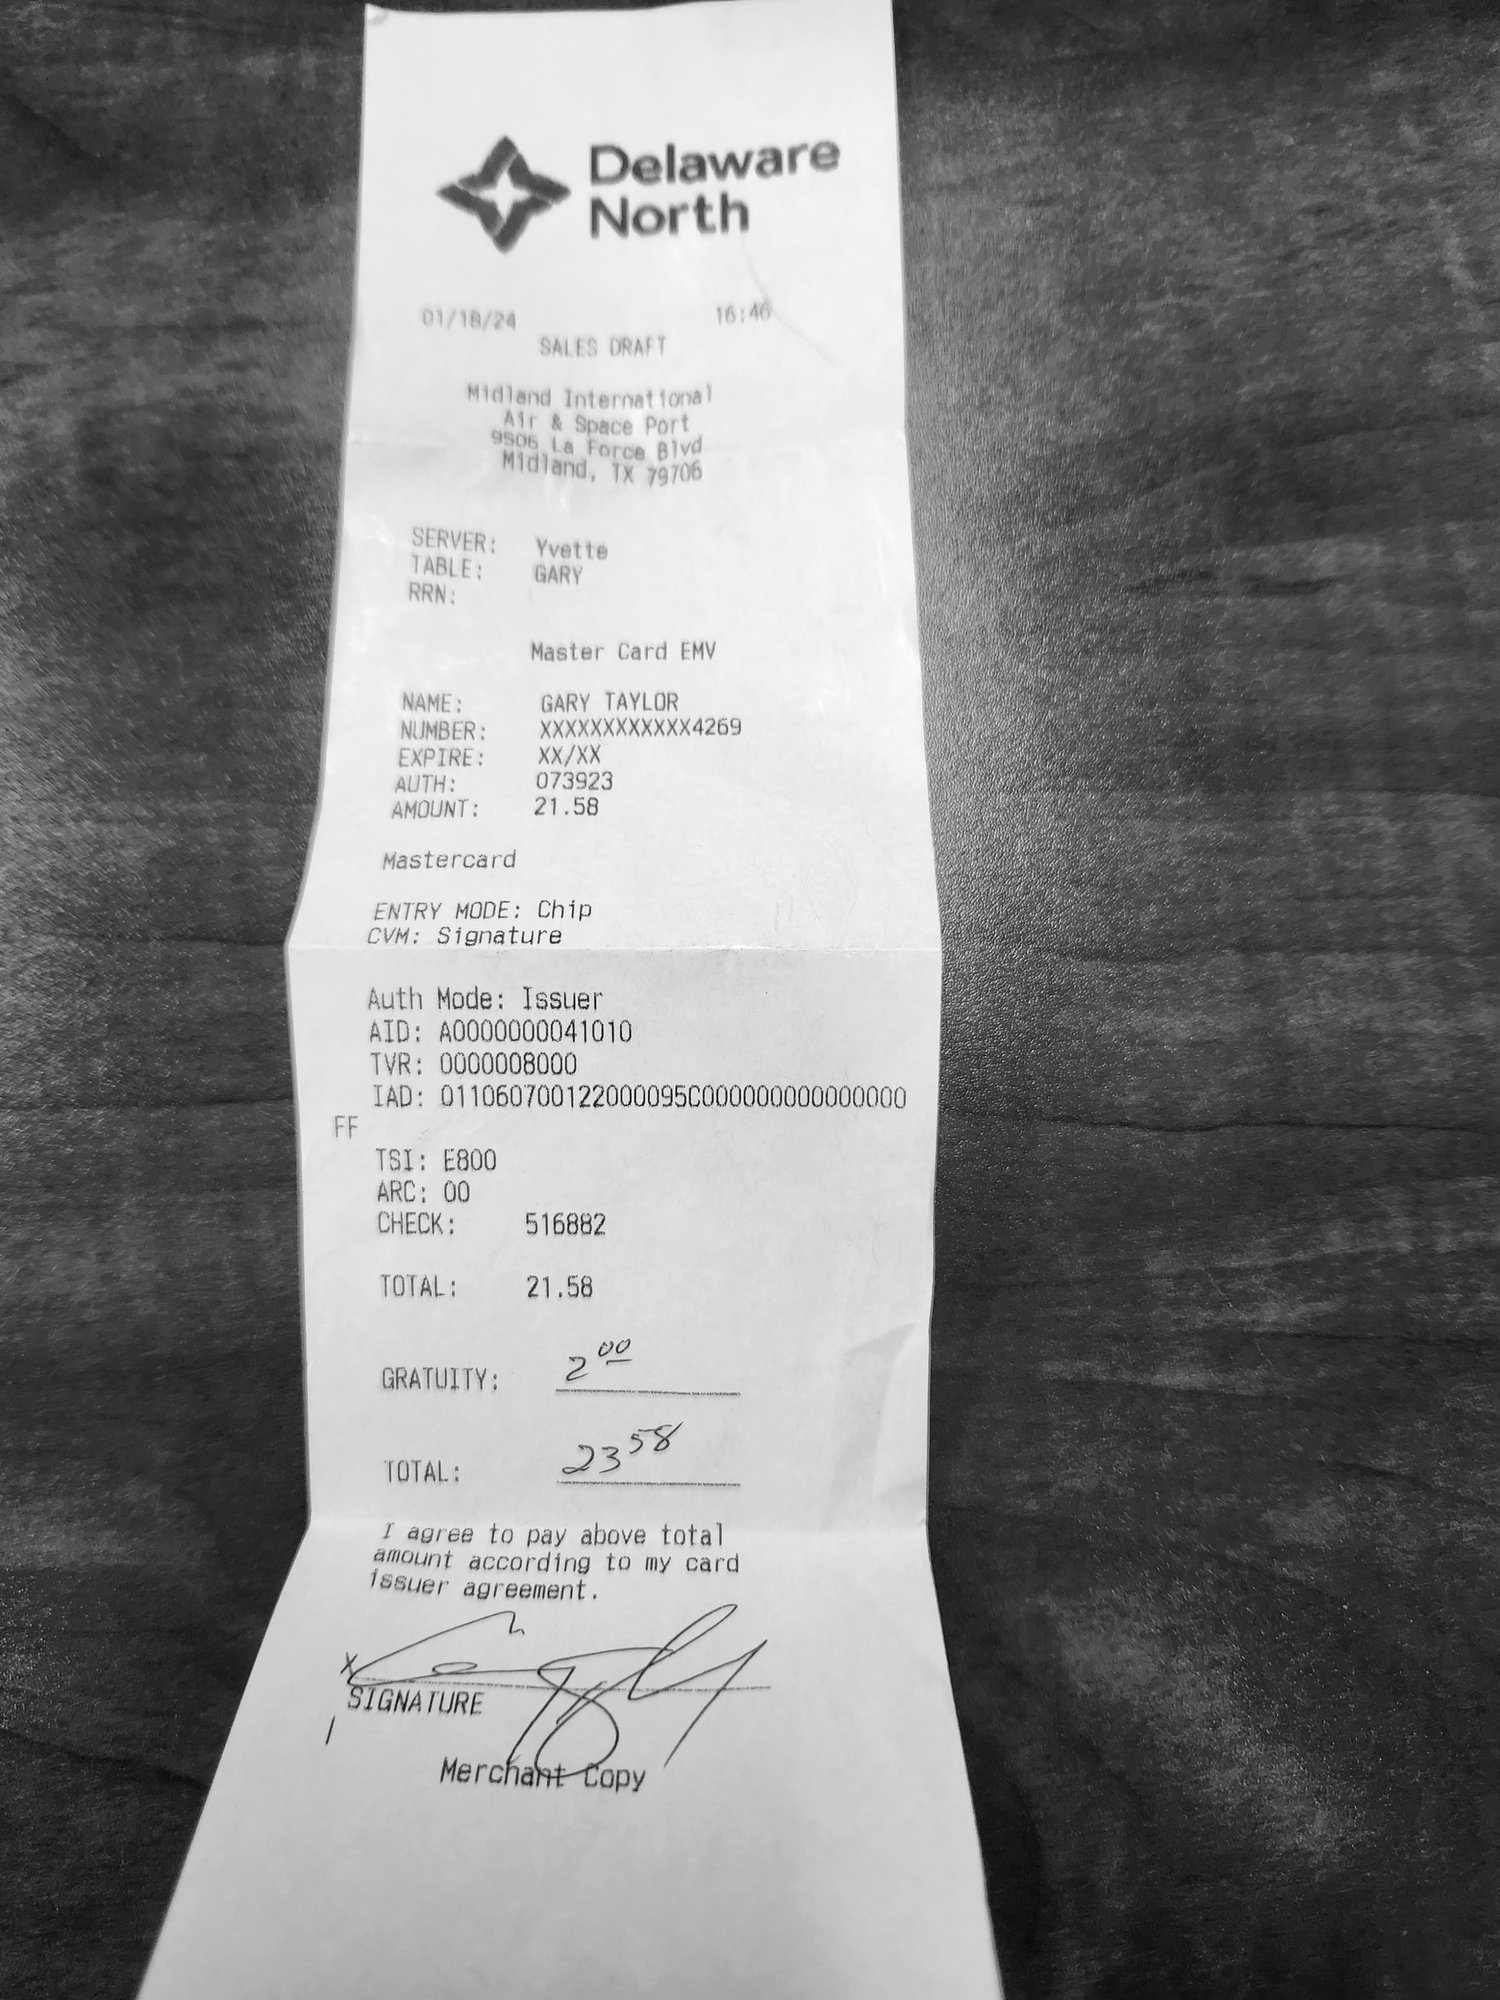 Delaware
North
01/18/24 16:46
SALES DRAFT
Midland International
Air & Space Port
9506 La Force Blvd
Midland, TX 79706
SERVER: Yvette
TABLE: GARY
RRN:
Master Card EMV
NAME: GARY TAYLOR
NUMBER: XXXXXXXXXXXX4269
EXPIRE: XX/XX
AUTH: 073923
AMOUNT: 21.58
Mastercard
ENTRY MODE: Chip
CVM: Signature
Auth Mode: Issuer
AID: A0000000041010
TVR: 0000008000
IAD: 011060700122000095C000000000000000
FF
TSI: E800
ARC: 00
CHECK: 516882
TOTAL: 21.58
GRATUITY: 2 00
TOTAL: 23 58
I agree to pay above total
amount according to my card
issuer agreement.
X
SIGNATURE
Merchant Copy